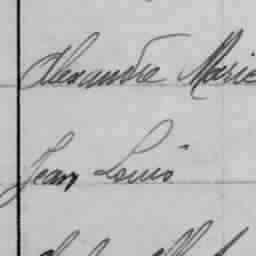 Alexandre Marie
Jean Louis